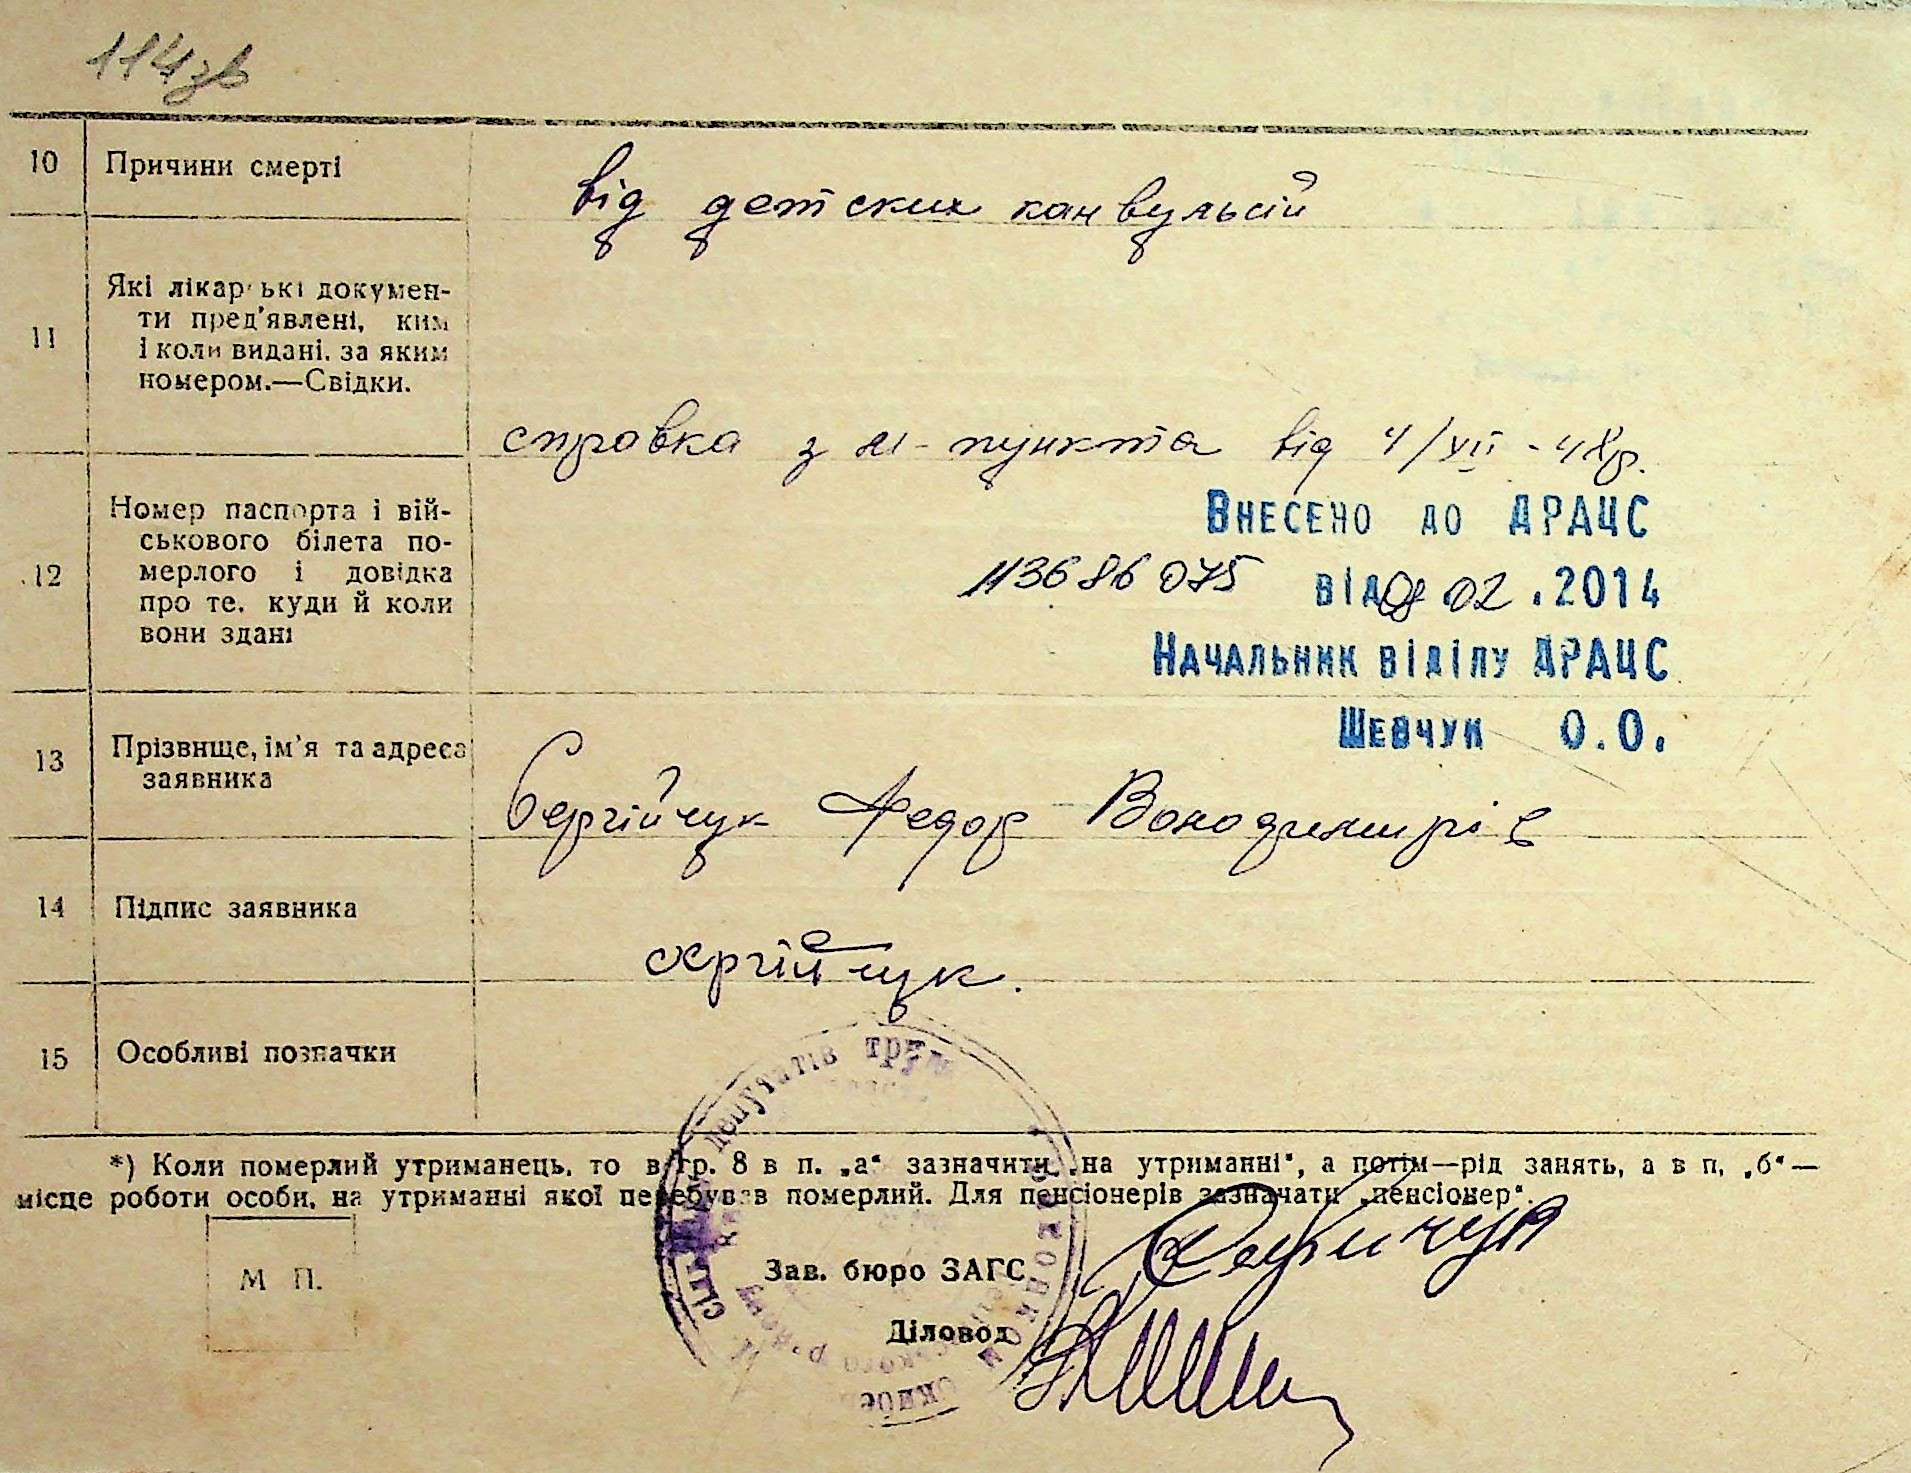 114зв
10 Причини смерті
від детских канвульсій
11 Які лікарські докумен-
ти пред'явлені, ким
і коли видані, за яким
номером.—Свідки.
справка з м-пункта від 4/XII-48р.
12 Номер паспорта і вій-
ськового білета по-
мерлого і довідка
про те, куди й коли
вони здані
Внесено до ДРАЦС
113686075 від 08.02.2014
Начальник відділу ДРАЦС
Шевчук О.О.
13 Прізвище, ім'я та адреса
заявника
Сергійчук Федор Володимирів
14 Підпис заявника
сергійчук.
15 Особливі позначки
депутатів труд
виконком
*) Коли померлий утриманець, то в гр. 8 в п. „а“ зазначити „на утриманні“, а потім—рід занять, а в п. „б“—
місце роботи особи, на утриманні якої перебував померлий. Для пенсіонерів зазначати „пенсіонер“.
М П.
Зав. бюро ЗАГС
Діловод